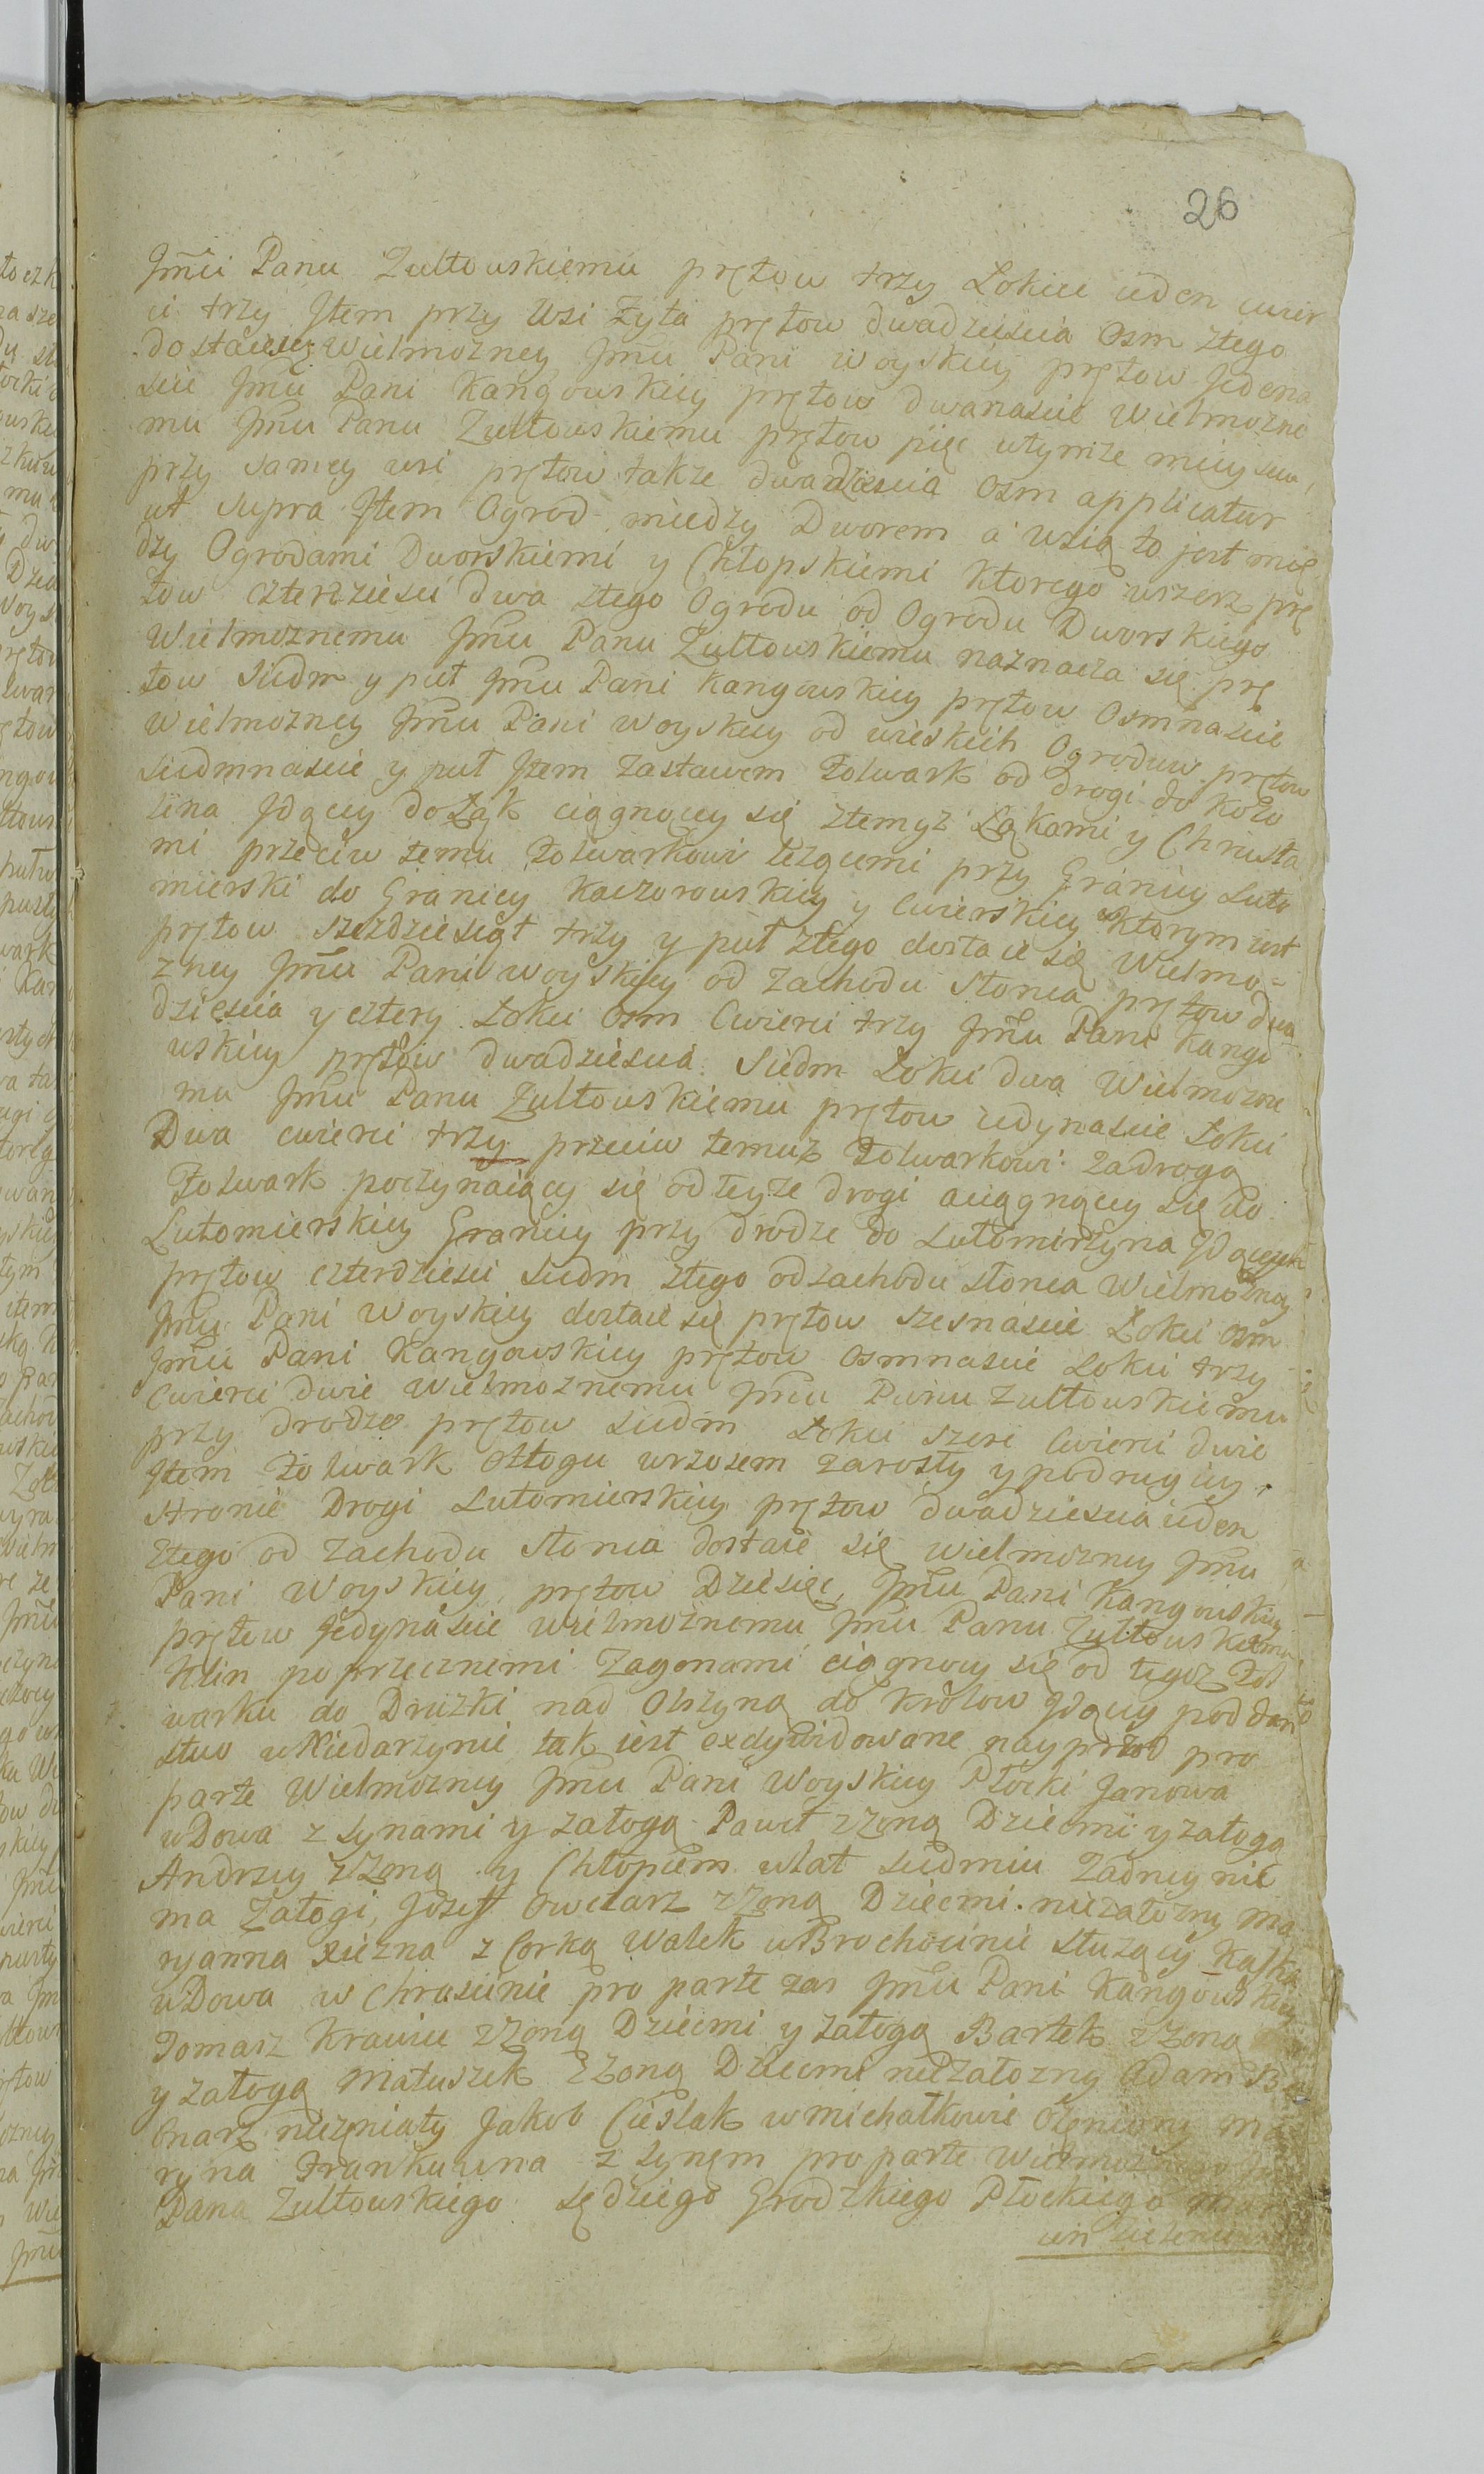 26
Jmci Panu Zułtowskiemu prętow trzy Łokiec ieden cwier
ci trzy Jtem przy Wsi Zyta prętow dwadziescia Osm ztego
dostaie się Wielmozney Jmci Pani Woyskiey prętow Jedena
scie Jmci Pani Kangowskiey prętow dwanascie Wielmozne
mu Jmci Panu Zułtowskiemu prętow pięc wtymze mieyscu,
przy samey wsi prętow takze dwadziescia Osm applicatur
ut supra Jtem Ogrod miedzy Dworem a wsią to jest mię
dzy Ogrodami Dworskiemi y Chłopskiemi ktorego wszerz prę
tow czterdziesci dwa ztego Ogrodu od Ogrodu Dworskiego
Wielmoznemu Jmci Panu Zułtowskiemu naznacza się prę
tow Siedm y puł Jmci Pani Kangowskiey prętow Osmnascie
Wielmozney Jmci Pani Woyskiey od wieskich Ogrodow prętow
Siedmnascie y puł Jtem Zastawem Folwark od drogi do Kozo
lina Jdącey do Łąk ciągnący się ztemyz Łąkami y Chrusta
mi przeciw temu Folwarkowi lezącemi przy Granicy Luto
mierski do Granicy Kaczorowskiey y Cwierskiey wktorym iest
prętow szezdziesiąt trzy y puł ztego dostaie się Wielmo=
zney Jmci Pani Woyskiey od Zachodu Słonca prętow dwa
dziescia y cztery Łokci Osm Cwierci trzy Jmci Pani Kango
wskiey prętow dwadziescia Siedm Łokci dwa Wielmozne
mu Jmci Panu Zułtowskiemu prętow iedynascie Łokci
Dwa cwierci trzy przeciw temuz Folwarkowi zadrogą
Folwark poczynaiący się od teyze drogi aciągnący się do
Lutomierskiey Granicy przy drodze do Lutomirzyna Jdącey
prętow czterdziesci Siedm ztego od zachodu słonca Wielmozney
Jmci Pani Woyskiey dostaie się prętow szesnascie Łokci Osm
Jmci Pani Kangowskiey prętow Osmnascie Łokci trzy
Cwierci dwie Wielmoznemu Jmci Panu Zułtowskiemu
przy drodze prętow siedm Łokci szesc Cwierci dwie
Jtem Folwark Odłogu wrzosem zarosły y podrugiey
stronie Drogi Lutomierskiey prętow dwadziescia ieden
ztego od Zachodu Słonca dostaie się Wielmozney Jmci
Pani Woyskiey prętow Dziesięc, Jmci Pani Kangowskiey
prętow Jedynascie Wielmoznemu Jmci Panu Zułtowskiemu
Klin poprzecznemi Zagonami ciągnący się od tegoz Fol
warku do Druzki nad Olszyną do Krolow Jdącey poddan
stwo wNiedarzynie tak iest exdywidowane nayprzod pro
parte Wielmozney Jmci Pani Woyskiey Płocki Janowa
wDowa z synami y załogą Paweł zZoną Dziecmi y załogą
Andrzey zZoną y Chłopiem wlat siedmiu Zadney nie
ma Załogi, Jozef Owczarz zZoną Dziecmi niezałozny Ma
ryanna Xięzna z Corką Walek wBrochocinie słuzący Kaska
wDowa w Chrascinie pro parte zas Jmci Pani Kangowskiey
Tomasz Krawiec zZoną Dziecmi y załogą Bartek zZoną
y załogą Matuszek zZoną Dziecmi niezałozny Adam
niezeniaty Jakob Cieslak wmichałkowie Ozeniony Ma
ryna Frankuwna z synem pro parte
Pana Zułtowskiego Sędziego Grodzkiego Płockiego